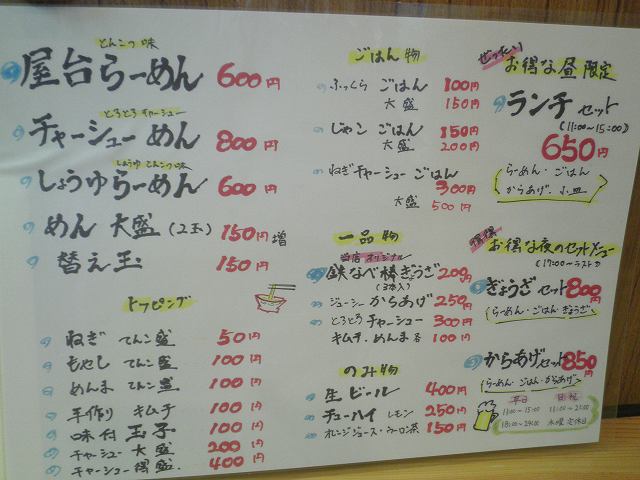 とんこつ味
屋台らーめん 600円
とろとろチャーシュー
チャーシューめん 800円
しょうゆとんこつ味
しょうゆらーめん 600円
めん 大盛(2玉) 150円増
替え玉 150円
トッピング
ねぎ てんこ盛 50円
もやし てんこ盛 100円
めんま てんこ盛 100円
手作り キムチ 100円
味付 玉子 100円
チャーシュー 大盛 200円
チャーシュー 得盛 400円
ごはん物
ふっくら ごはん 100円
大盛 150円
じゃこ ごはん 150円
大盛 200円
ねぎチャーシューごはん
300円
大盛 500円
一品物
当店オリジナル
鉄なべ棒ぎょうざ 200円
(3本入)
ジューシー からあげ 250円
とろとろ チャーシュー 300円
キムチ・めんま各 100円
のみ物
生ビール 400円
チューハイ レモン 250円
オレンジジュース・ウーロン茶 150円
ぜったい
お得な昼限定
ランチセット
(11:00~15:00)
650円
らーめん・ごはん
からあげ・小皿
お得な夜のセットメニュー
(17:00~ラスト)
ぎょうざセット 800円
らーめん・ごはん・ぎょうざ
からあげセット 850円
らーめん・ごはん・からあげ
平日 日・祝
11:00~15:00 11:00~21:00
18:00~24:00 水曜 定休日